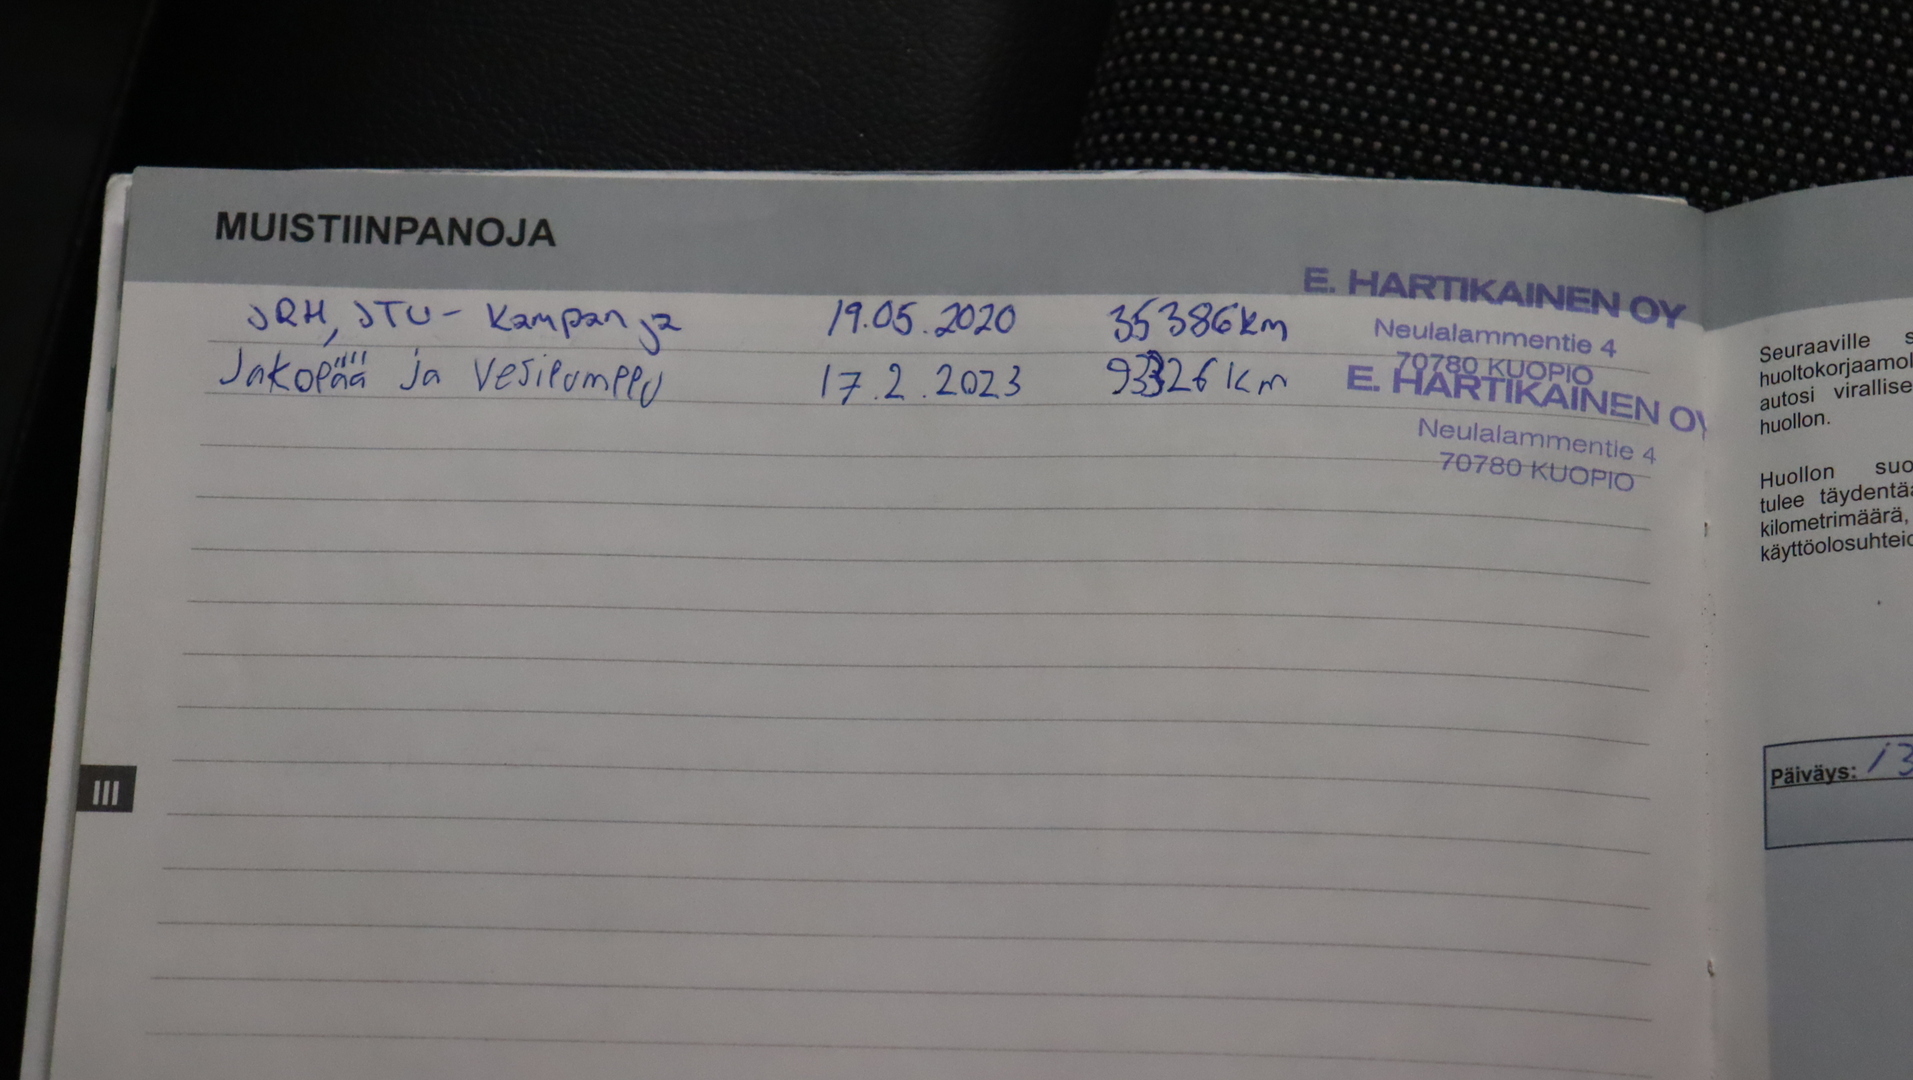 MUISTIINPANOJA
JRH, JTU - Kampanja 19.05.2020 35386km
E. HARTIKAINEN OY
Neulalammentie 4
70780 KUOPIO
Jakopää ja Vesipumppu 17.2.2023 93326km
E. HARTIKAINEN OY
Neulalammentie 4
70780 KUOPIO
III
Seuraaville
huoltokorjaamol
autosi virallise
huollon.
Huollon suo
tulee täydentä
kilometrimäärä,
käyttöolosuhteid
Päiväys: 13